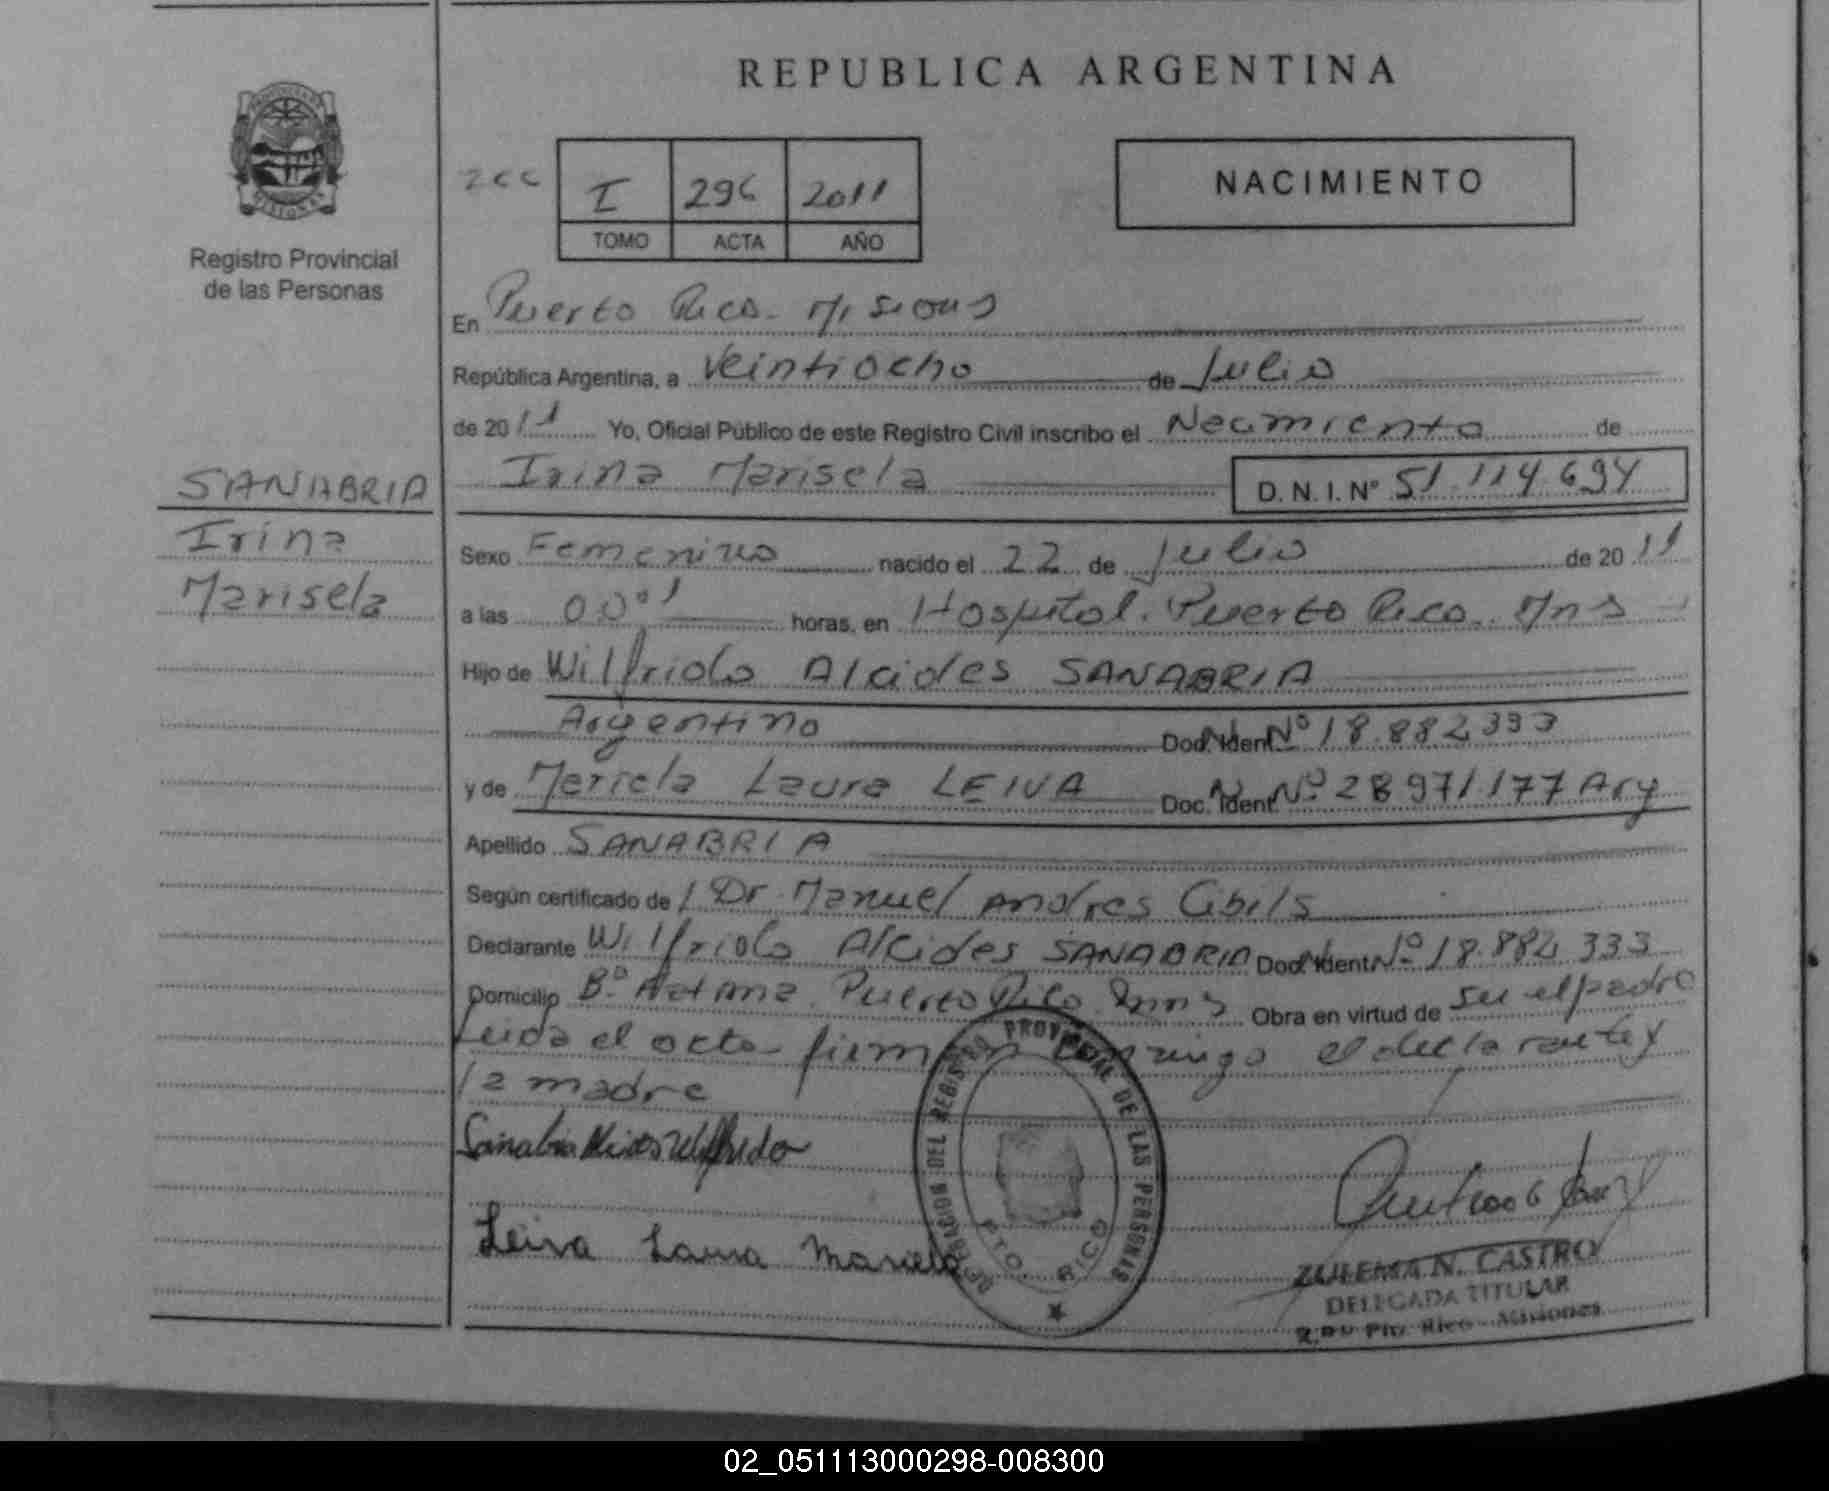 REPUBLICA ARGENTINA
Registro Provincial
de las Personas
I 296 2011
TOMO ACTA AÑO
NACIMIENTO
En Puerto Rico. Misiones
República Argentina, a Veintiocho de Julio
de 2011 Yo, Oficial Público de este Registro Civil inscribo el Nacimiento de
Irina Marisela D.N.I.Nº 51.114.694
SANABRIA
Irina
Marisela
Sexo Femenino nacido el 22 de Julio de 2011
a las 00⁰¹ horas, en Hospital. Puerto Rico. Mns
Hijo de Wilfrido Alcides SANABRIA
Argentino Doc. Ident Nº 18.882.333
y de Mariela Laura LEIVA Doc. Ident Nº 28971.177 Arg
Apellido SANABRIA
Según certificado de Dr. Manuel Andres Cibils
Declarante Wilfrido Alcides SANABRIA Doc. Ident Nº 18.882.333
Domicilio Bº Puerto Rico Mns Obra en virtud de ser el padre
Leida el acta firman conmigo el declarante y
la madre
Sanabria Alcides Wilfredo
Leiva Laura Mariela
DELEGACION DEL REGISTRO PROVINCIAL DE LAS PERSONAS
PTO. RICO
ZULEMA N. CASTRO
DELEGADA TITULAR
Pto. Rico - Misiones
02_051113000298-008300